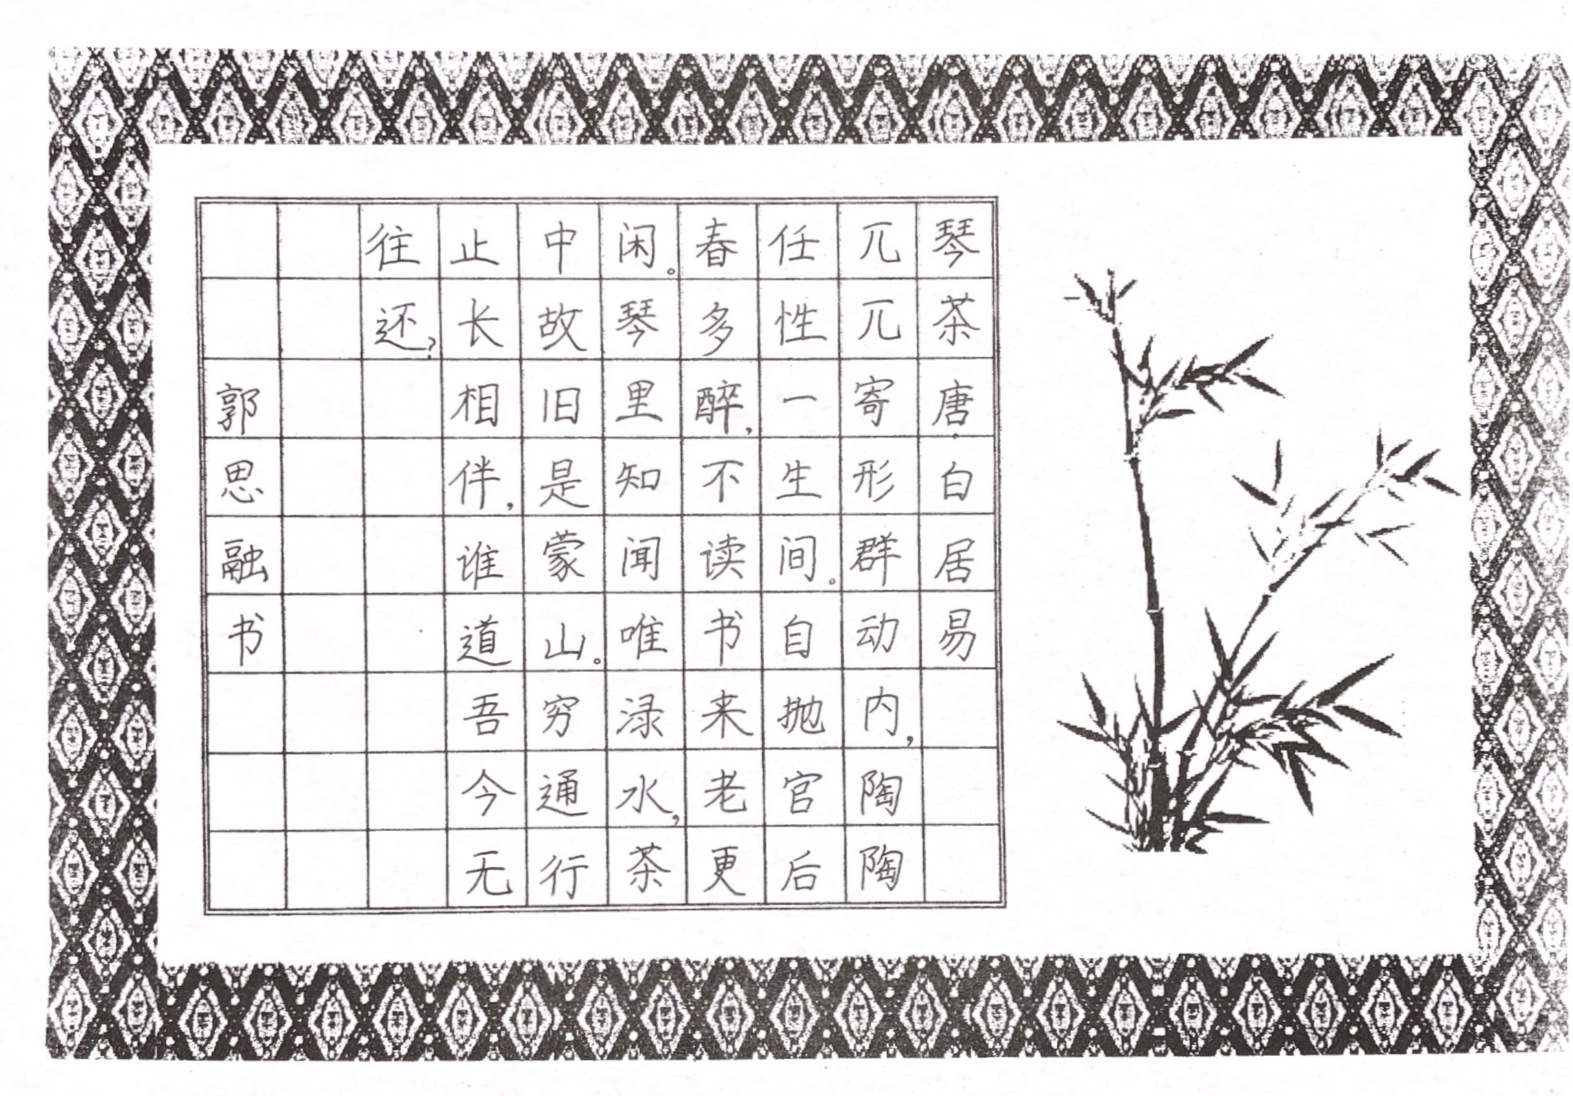 琴茶唐·白居易
兀兀寄形群动内，陶陶
任性一生间。自抛官后
春多醉，不读书来老更
闲。琴里知闻唯渌水，茶
中故旧是蒙山。穷通行
止长相伴，谁道吾今无
往还？
郭思融书